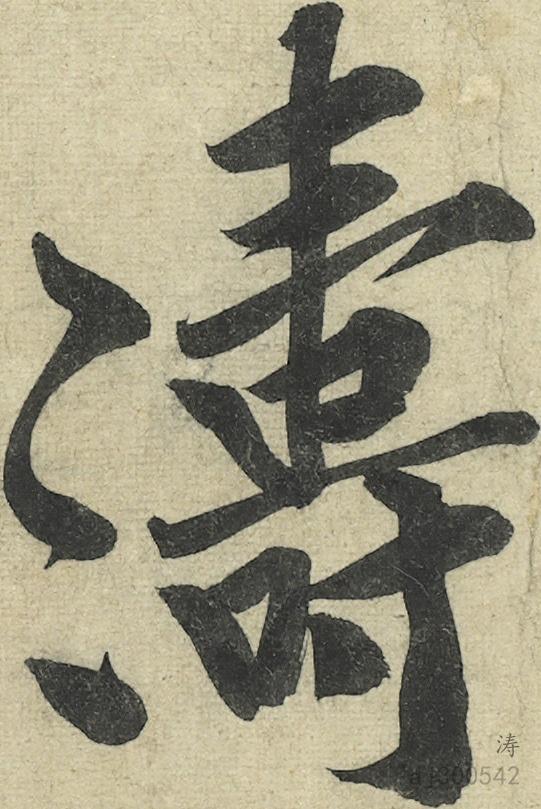 濤
涛
aj300542